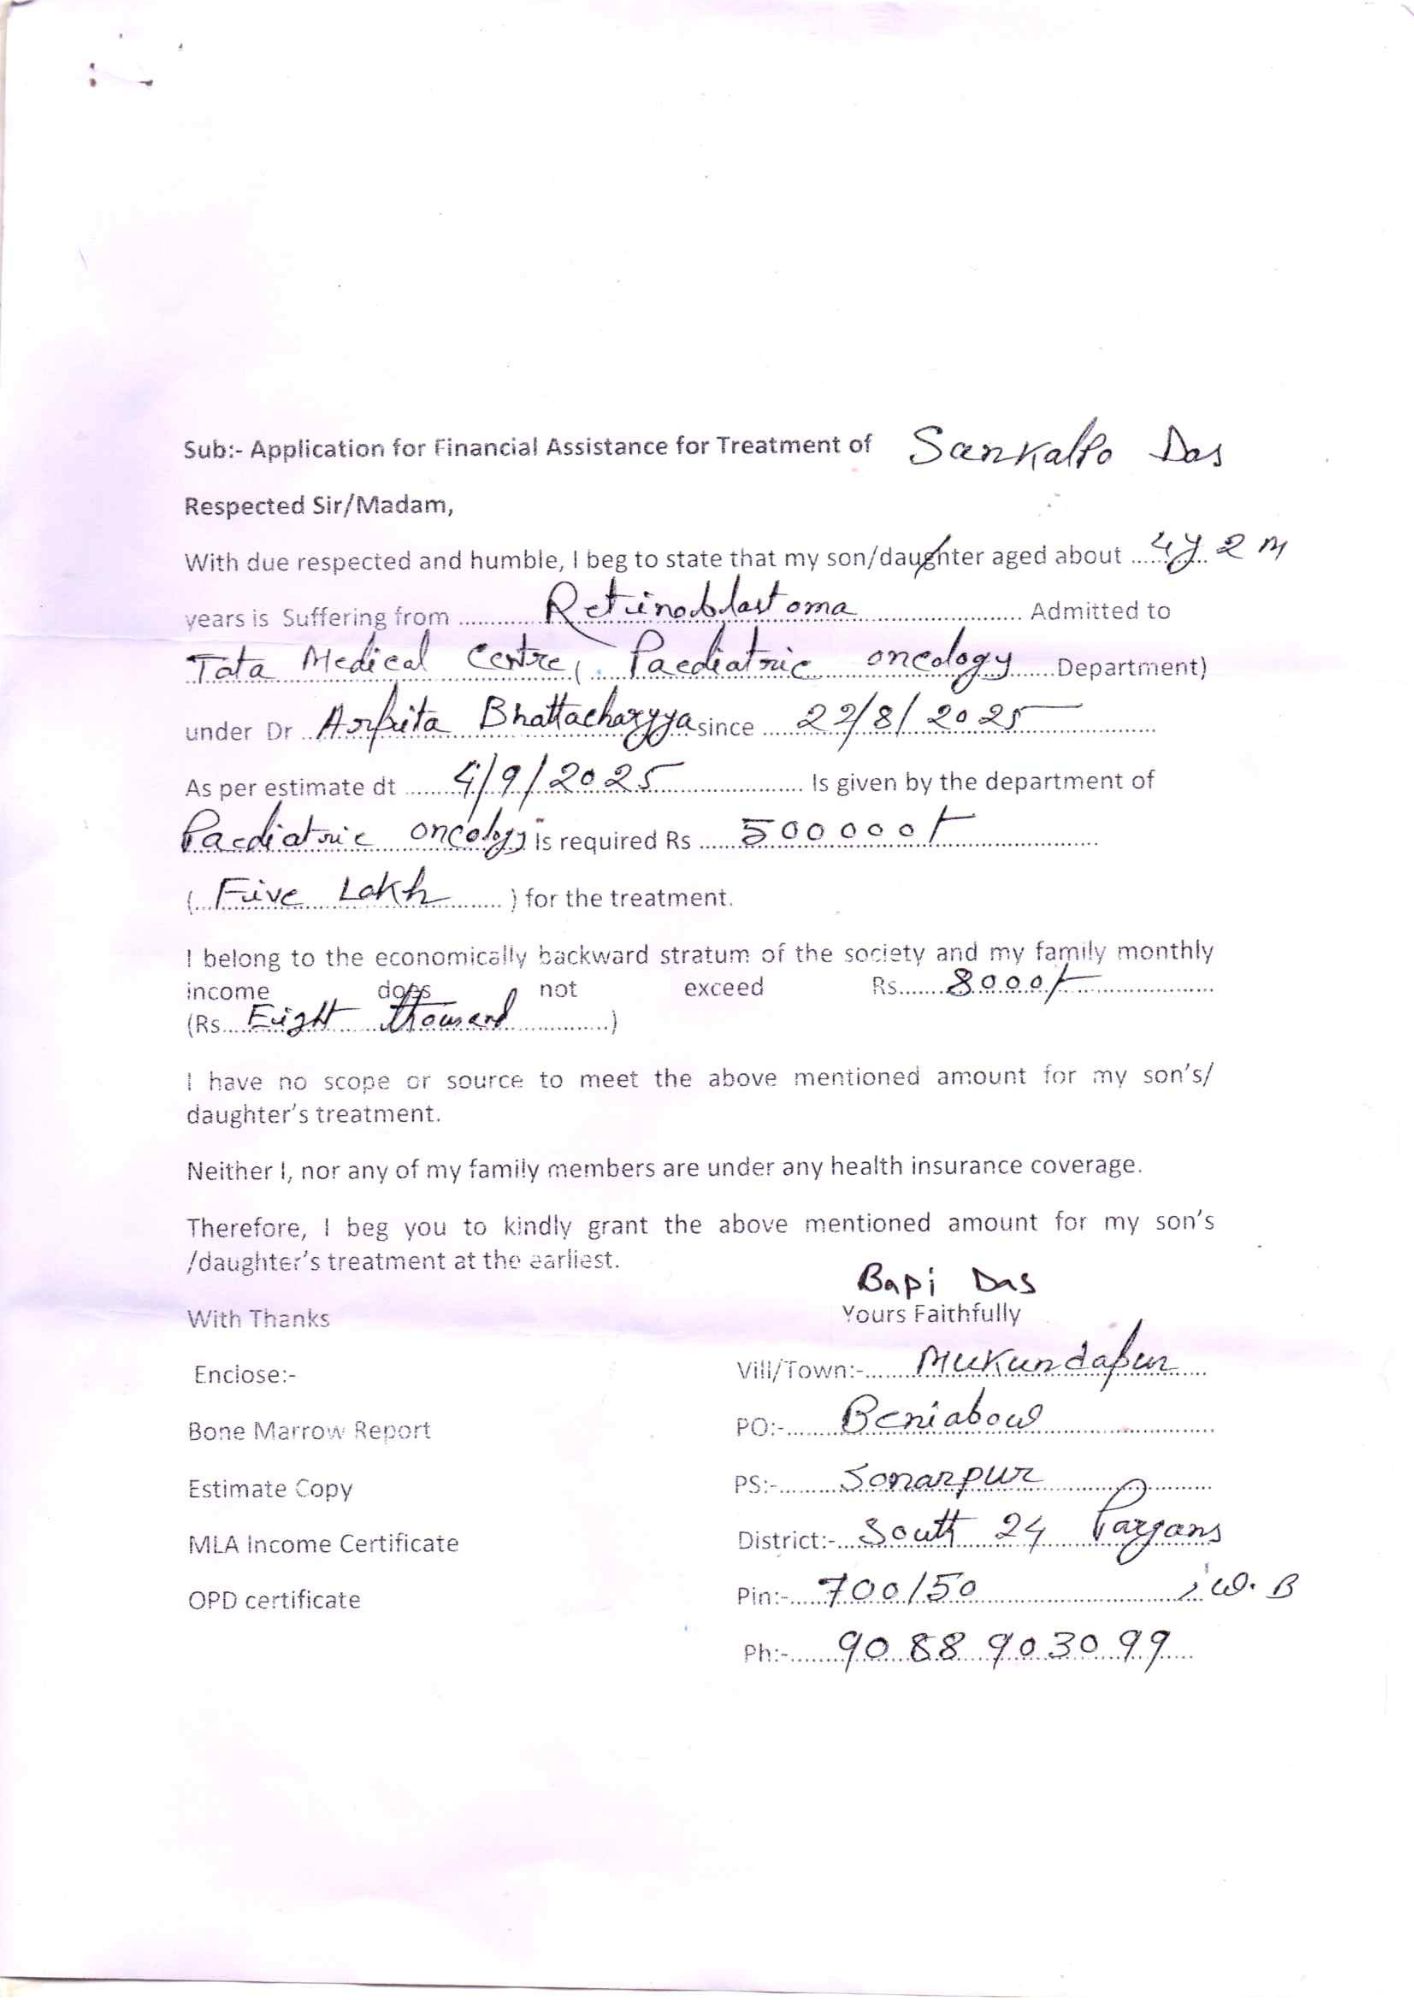 Sub:- Application for Financial Assistance for Treatment of Sankalpo Das
Respected Sir/Madam,
With due respected and humble, I beg to state that my son/daughter aged about ....4y. 2 m
years is Suffering from ............Retinoblastoma........................ Admitted to
Tata Medical Centre ( Paediatric oncology ......Department)
under Dr ..Arpita Bhattacharyya since .....22/8/2025....................
As per estimate dt .......4/9/2025.................... Is given by the department of
Paediatric oncology is required Rs ......500000/-........................
(...Five Lakh..........) for the treatment.
I belong to the economically backward stratum of the society and my family monthly
income does not exceed Rs.......8000/-..................
(Rs....Eight thousand..............)
I have no scope or source to meet the above mentioned amount for my son's/
daughter's treatment.
Neither I, nor any of my family members are under any health insurance coverage.
Therefore, I beg you to kindly grant the above mentioned amount for my son's
/daughter's treatment at the earliest.
Bapi Das
With Thanks Yours Faithfully
Enclose:- Vill/Town:-.......Mukundapur.....
Bone Marrow Report PO:-........Beniabow........................
Estimate Copy PS:-.........Sonarpur........................
MLA Income Certificate District:-...South 24 Pargans
OPD certificate Pin:-.....700150............................, W. B
Ph:-.......90 88 903099.....